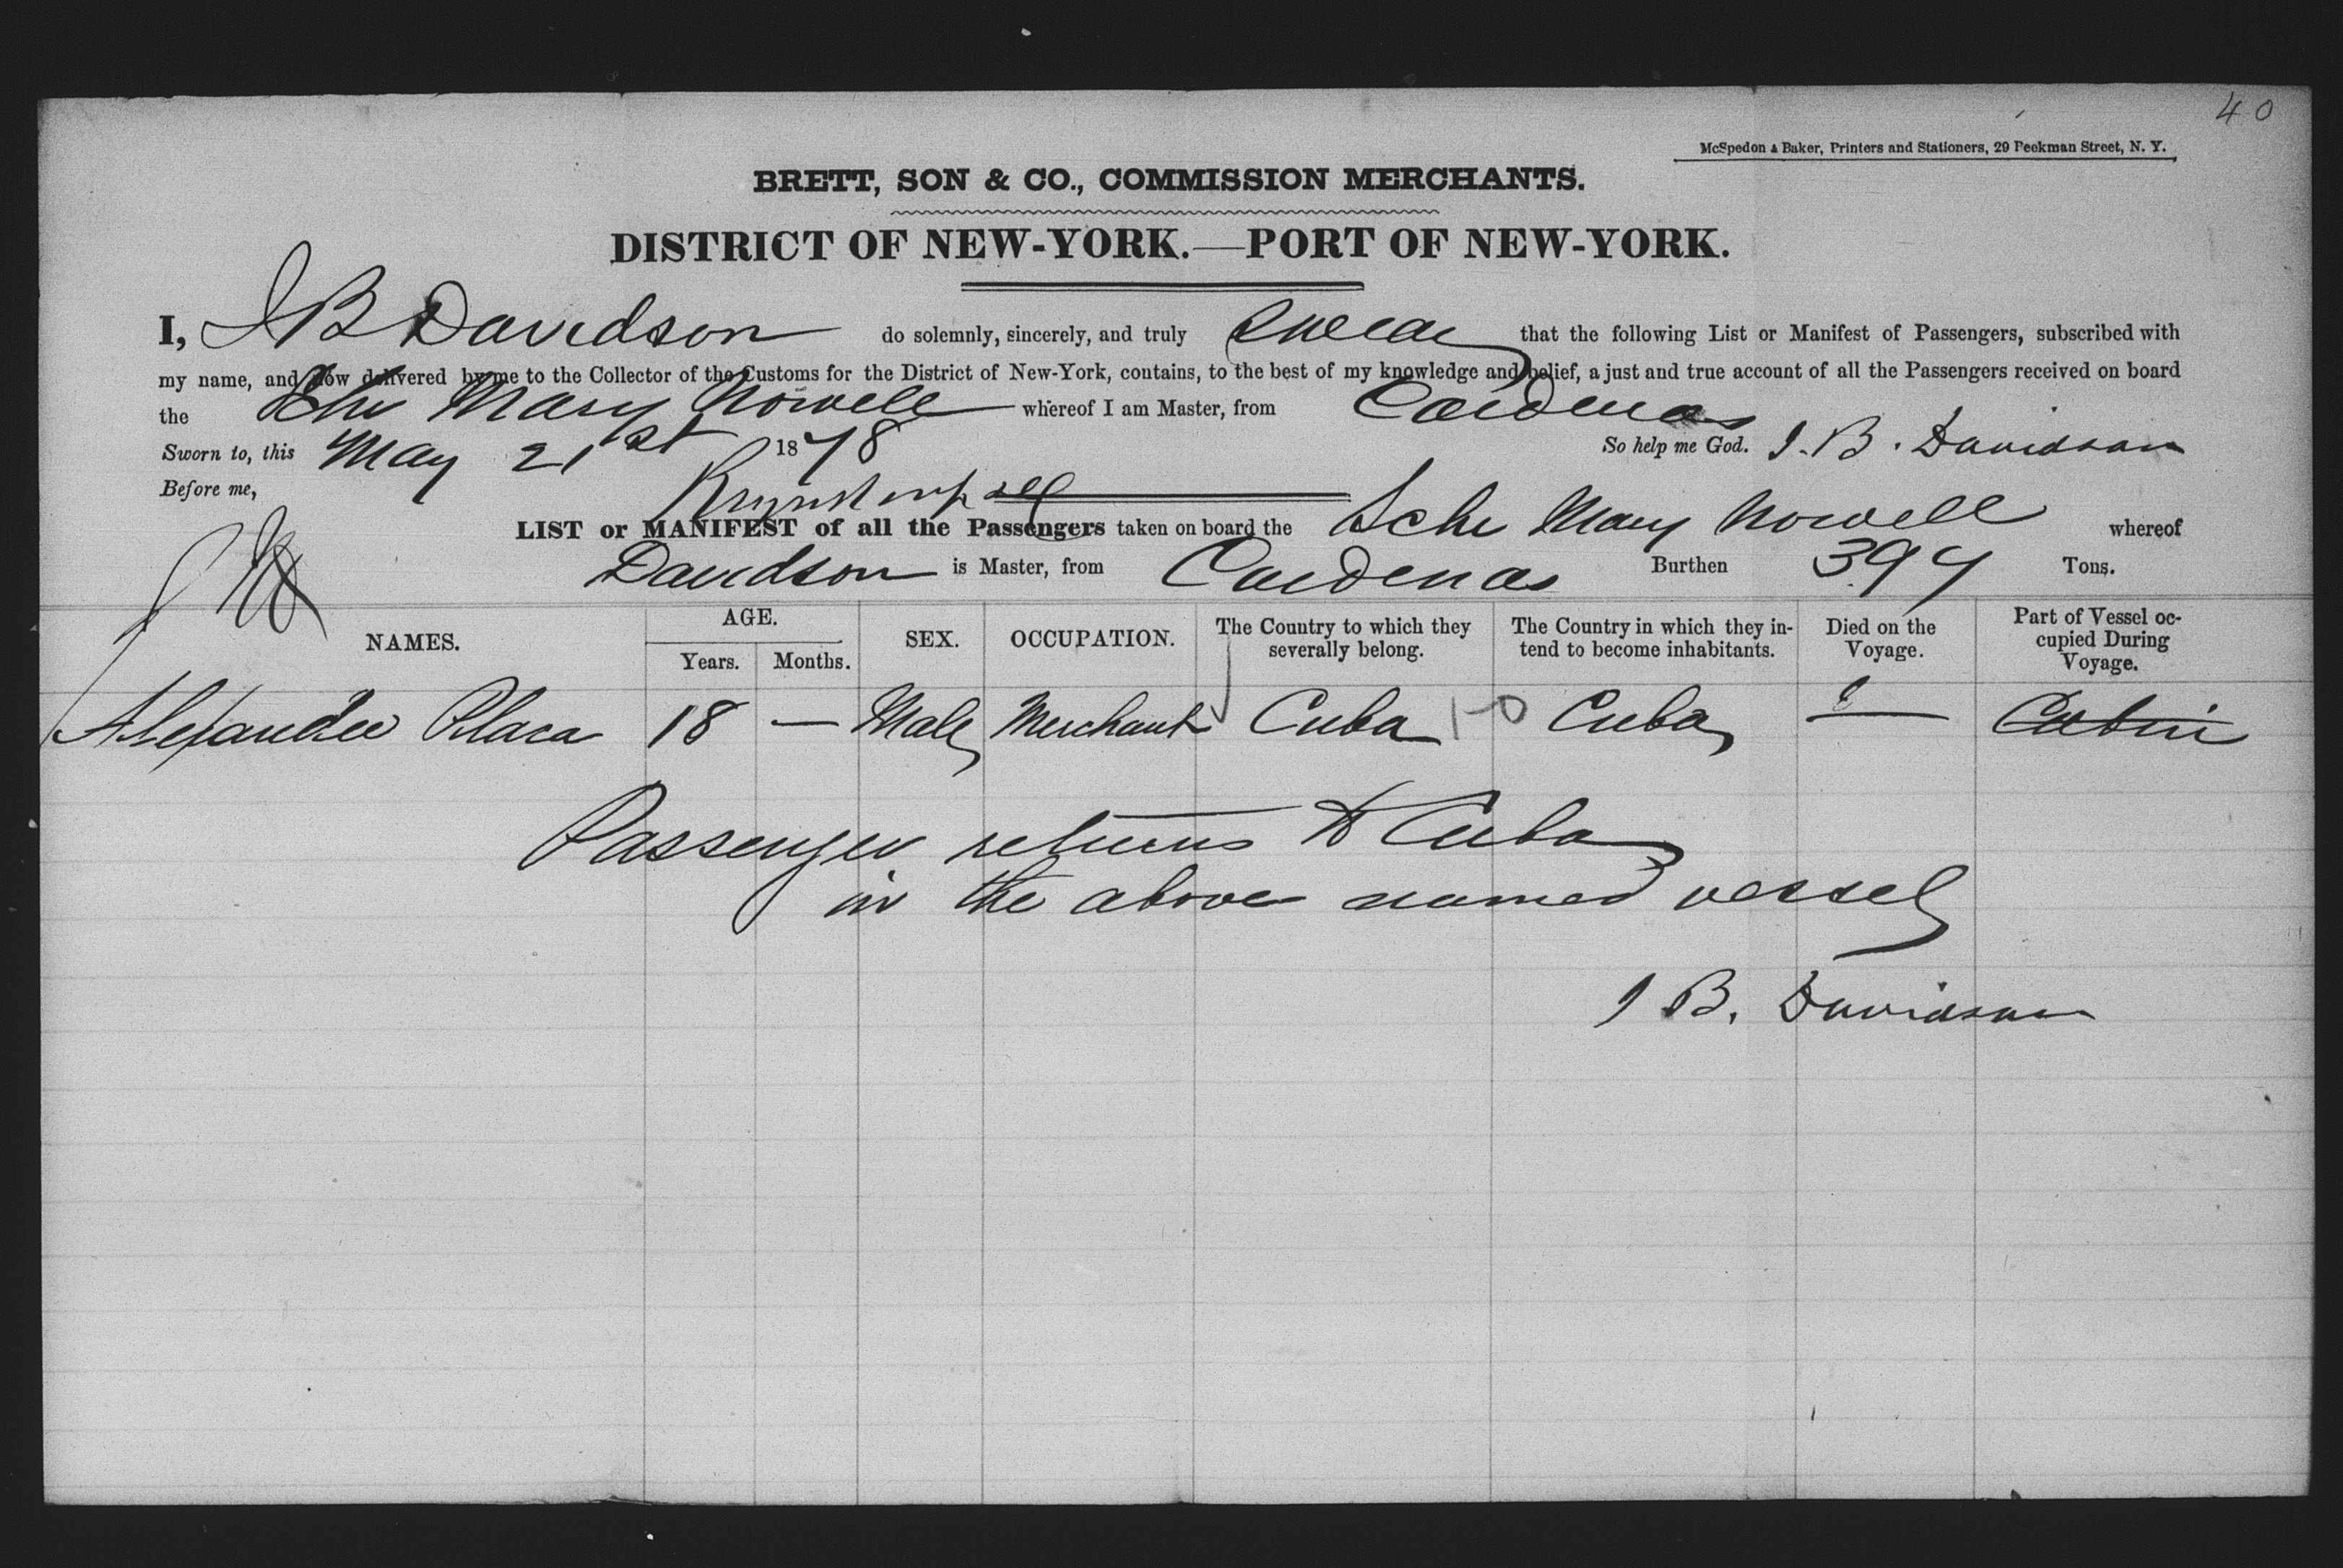 40
McSpedon & Baker, Printers and Stationers, 29 Beekman Street, N. Y.
BRETT, SON & CO., COMMISSION MERCHANTS.
DISTRICT OF NEW-YORK.—PORT OF NEW-YORK.
I, J B Davidson do solemnly, sincerely, and truly swear that the following List or Manifest of Passengers, subscribed with
my name, and now delivered by me to the Collector of the Customs for the District of New-York, contains, to the best of my knowledge and belief, a just and true account of all the Passengers received on board
the Schr Mary Nowell whereof I am Master, from Cardenas
Sworn to, this May 21st 1878 So help me God. J. B. Davidson
Before me,
LIST or MANIFEST of all the Passengers taken on board the Schr Mary Nowell whereof
Davidson is Master, from Cardenas Burthen 394 Tons.
NAMES. AGE. Years. Months. SEX. OCCUPATION. The Country to which they severally belong. The Country in which they intend to become inhabitants. Died on the Voyage. Part of Vessel occupied During Voyage.
Alexander Placa 18 — Male Merchant Cuba Cuba — Cabin
Passenger returns to Cuba
in the above named vessel
J B. Davidson